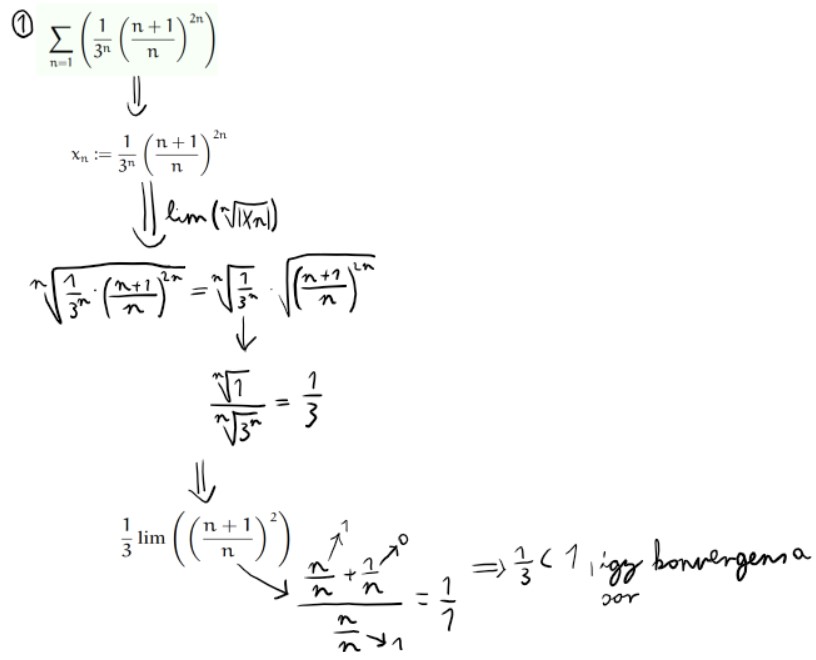 ① \sum_{n=1} \left( \frac{1}{3^n} \left( \frac{n+1}{n} \right)^{2n} \right)
⇓
x_n := \frac{1}{3^n} \left( \frac{n+1}{n} \right)^{2n}
⇓ lim(\sqrt[n]{|x_n|})
\sqrt[n]{\frac{1}{3^n} \cdot \left( \frac{n+1}{n} \right)^{2n}} = \sqrt[n]{\frac{1}{3^n}} \cdot \sqrt{\left( \frac{n+1}{n} \right)^{2n}}
↓
\frac{\sqrt[n]{1}}{\sqrt[n]{3^n}} = \frac{1}{3}
⇓
\frac{1}{3} lim \left( \left( \frac{n+1}{n} \right)^2 \right) ↘ \frac{\frac{n}{n}^{↗1} + \frac{1}{n}^{↗0}}{\frac{n}{n} ↘ 1} = \frac{1}{1} ⇒ \frac{1}{3} < 1, így konvergens a
sor